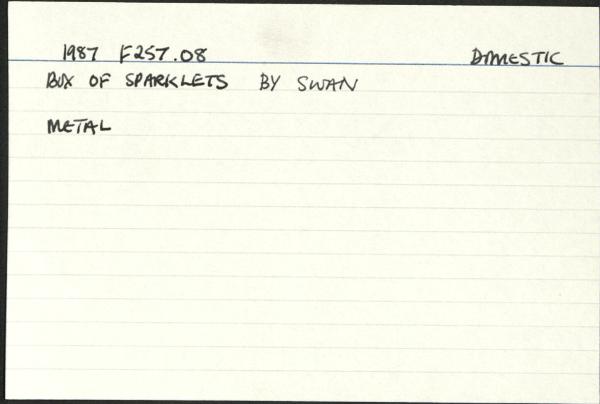 1987 F257.08 DOMESTIC
BOX OF SPARKLETS BY SWAN
METAL